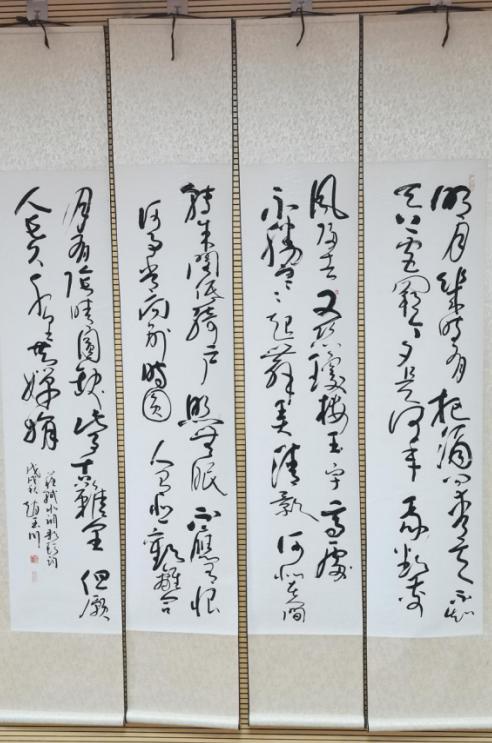 明月幾時有把酒問青天不知
天上宮闕今夕是何年我欲乘
風歸去又恐瓊樓玉宇高處
不勝寒起舞弄清影何似在人間
轉朱閣低綺戶照無眠不應有恨
何事長向別時圓人有悲歡離合
月有陰晴圓缺此事古難全但願
人長久千里共嬋娟
蘇軾水調歌頭詞
戊戌秋趙玉川